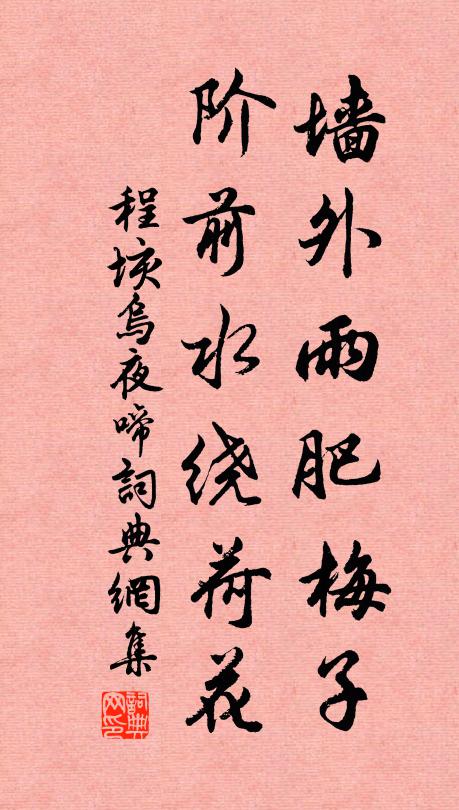 墙外雨肥梅子
阶前水绕荷花
程垓乌夜啼詞典網集
詞典網印